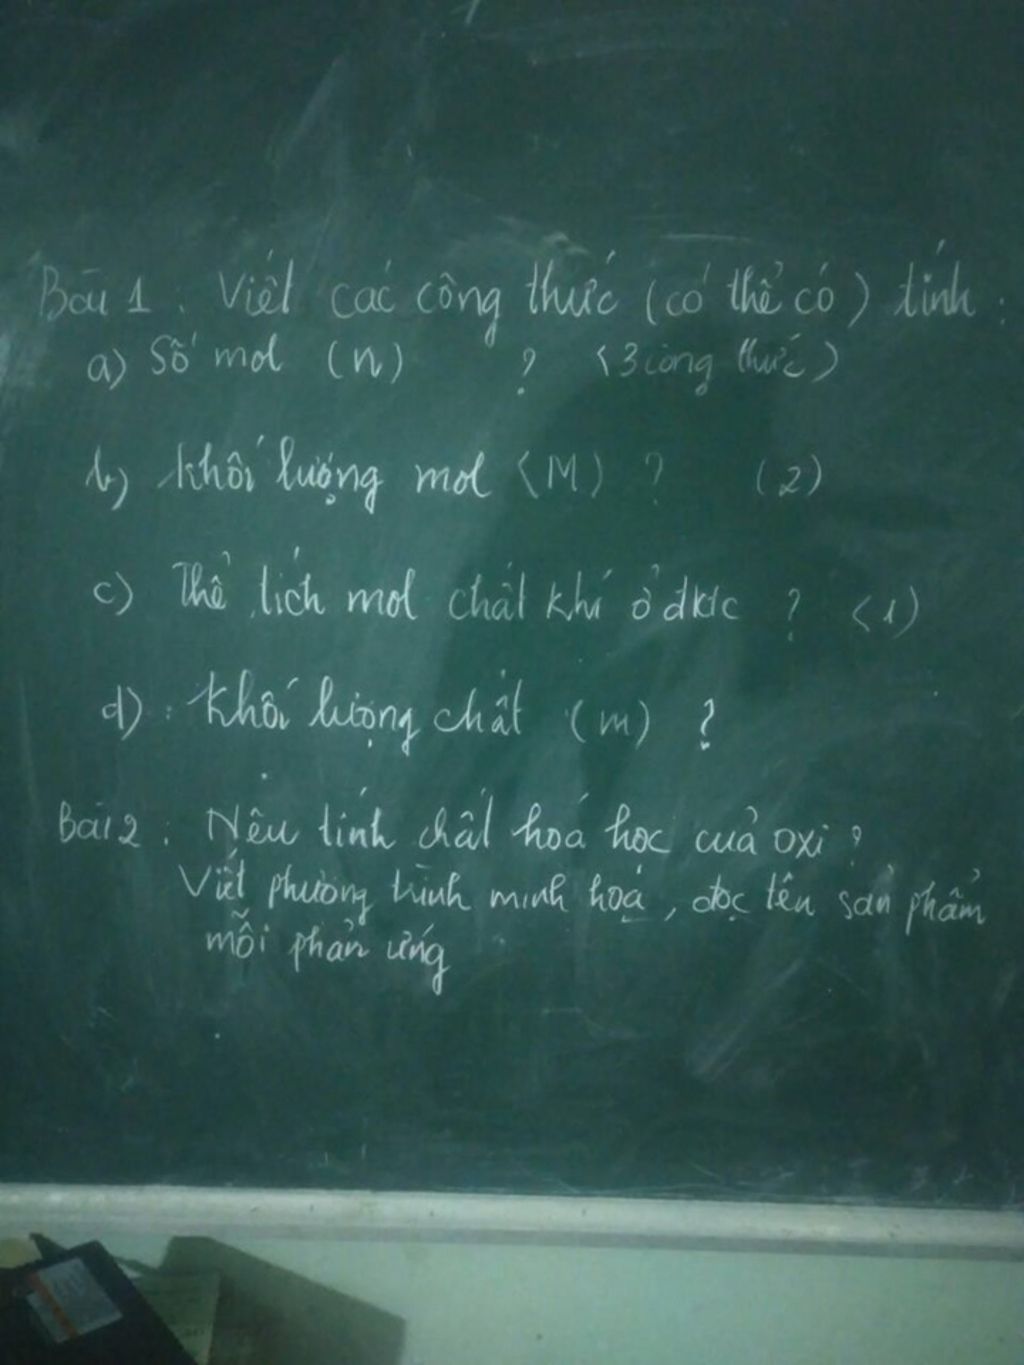 Bài 1. Viết các công thức (có thể có) tính:
a) Số mol (n) ? (3 công thức)
b) Khối lượng mol (M) ? (2)
c) Thể tích mol chất khí ở đktc ? (1)
d) Khối lượng chất (m) ?
Bài 2: Nêu tính chất hoá học của oxi?
Viết phương trình minh hoạ, đọc tên sản phẩm
mỗi phản ứng